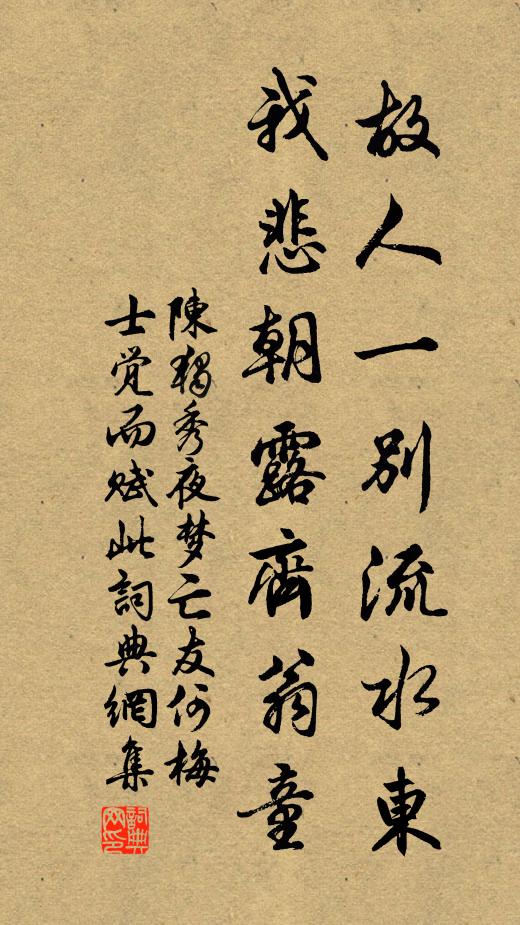 故人一別流水東
我悲朝露齊翁童
陳獨秀夜梦亡友何梅
士觉而賦此詞典網集
詞典网印